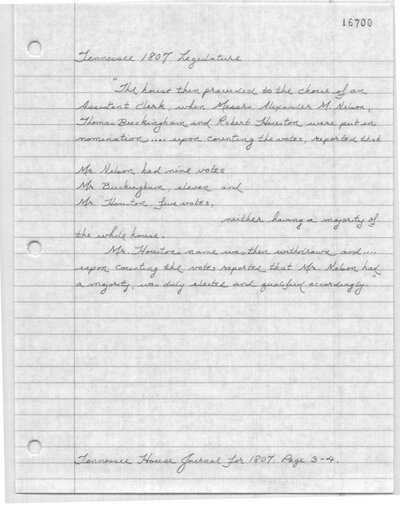 16700
Tennessee 1807 Legislature
"The house then proceeded to the choice of an
Assistant Clerk, when Messrs. Alexander M. Nelson,
Thomas Buckingham and Robert Houston were put in
nomination .... upon counting the votes, reported that
Mr. Nelson had nine votes
Mr. Buckingham, eleven and
Mr. Houston five votes,
neither having a majority of
the whole house.
Mr. Houstons name was then withdrawn and ....
upon counting the votes reported that Mr. Nelson had
a majority, was duly elected and qualified accordingly."
Tennessee House Journal for 1807. Page 3-4.